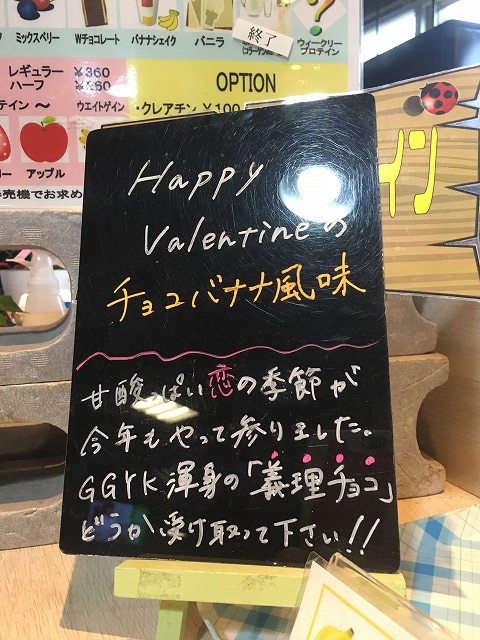 ミックスベリー
Wチョコレート
バナナシェイク
バニラ
終了
ウィークリー
プロテイン
レギュラー ¥360
ハーフ ¥260
OPTION
テイン ～
ウエイトゲイン
・クレアチン ¥100
アップル
売機でお求め
イン
Happy
Valentineの
チョコバナナ風味
甘酸っぱい恋の季節が
今年もやって参りました。
GGYK渾身の「義理チョコ」
どうか受け取って下さい!!